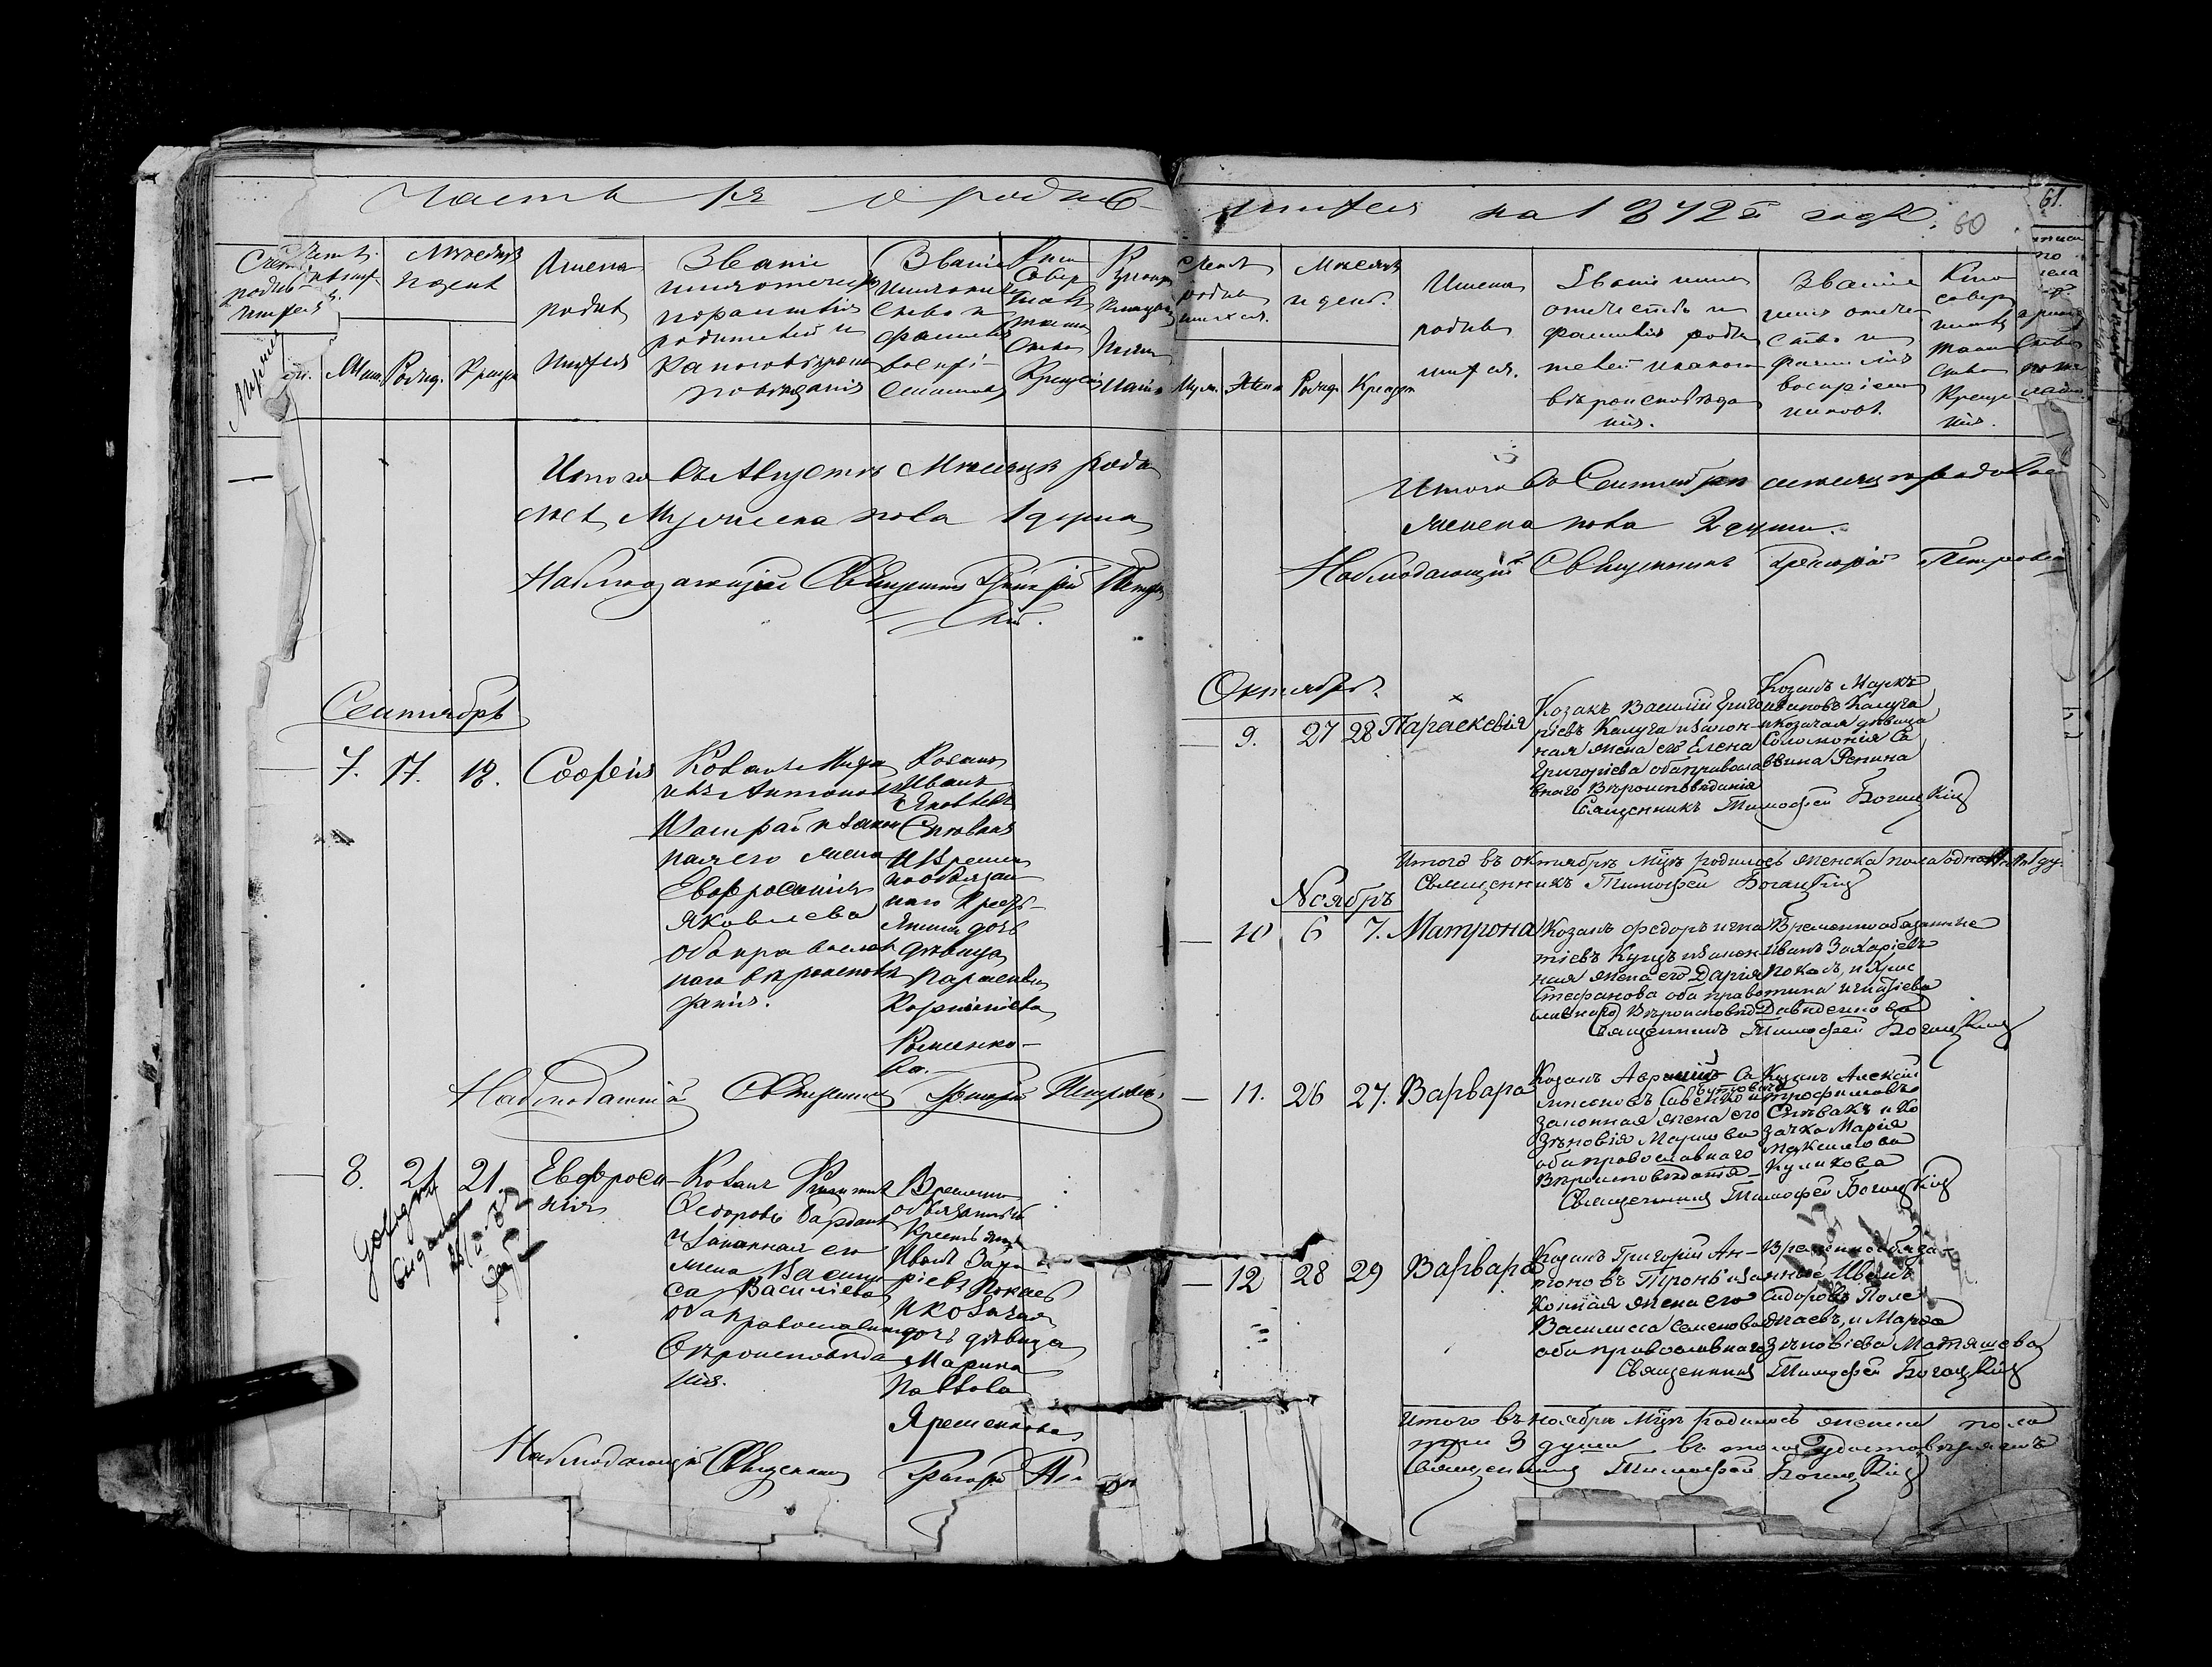 Часть 1я о родив-
шихся на 1872й годъ. 60
61.
Мѣсяцъ
и день
Имена
родив
шихся
Званіе
имя отечест
и фамилія
родителей и
какого вѣроис
повѣданія
Званіе
имя отече
ство и
фамилія
воспрі-
емниковъ
Кто
Совер
шалъ
таин
ство
Крещенія
Счетъ
родив
шихся.
Мѣсяцъ
и день.
Имена
родив
шихся.
Званіе имя
отечество и
фамилія роди
телей и какого
вѣроисповѣда
нія.
Званіе
имя отече
ство и
фамилія
воспріем
никовъ.
Кто
совер
шалъ
таин
ство
Креще
нія.
Муж. Жен. Рожд. Крещен
Итого въ Августѣ Мѣсяцѣ роди
лось Мужеска пола 1 душа
Наблюдающій Священникъ Григорій Петров
скій.
Сентябрь
7. 17. 18. Софія
Козакъ
Антоновъ
и закон
ная его жена
Евфросинія
Яковлева
оба православ
наго вѣроисповѣ
данія.
Козакъ
Иванъ
Яковлевъ
и Времен
нообязан
наго Крест-
янина дочь
дѣвица
Параскевія
Романенко-
ва.
Наблюдающій Священникъ Григорій Петровскій
8. 21 21. Евфроси-
нія
Козакъ
Федоровъ
и законная его
жена Васили
са Васильева
оба православнаго
вѣроисповѣда
нія.
Временно
обязанный
Крестьян
Иванъ Заха
ріевъ Покасъ
и козачая
дочь дѣвица
Марина
Павлова
Яременкова
Наблюдающій Священникъ Григорій
Итого въ Сентябрѣ мѣсяцѣ родилось
женска пола 2 души.
Наблюдающій Священникъ Григорій Петровскій
Октябрь.
9. 27 28 Параскевія
Козакъ Василій Григо
ріевъ Калуга и закон-
ная жена его Елена
Григоріева оба правосла
внаго вѣроисповѣданія
Козакъ Маркъ
Ивановъ Калуга
и козачая дѣвица
Соломонія Са
ввина Репина
Священникъ Тимофей Богацкій
Итого въ октябрѣ мцѣ родилось женска пола одна 1 ду.
Священникъ Тимофей Богацкій
Ноябрь
10 6 7. Матрона
Козакъ Федоръ Игна
тіевъ Куцъ и закон-
ная жена его Дарія
Стефанова оба право
славнаго Вѣроисповѣд
Временнообязанные
Иванъ Захаріевъ
Покасъ, и Хрис
тина Игнатіева
Давиденкова
Священникъ Тимофей Богацкій
11. 26 27. Варвара
Козакъ Аврамій Са
законная жена его
Зѣновія Маркова
оба православнаго
Вѣроисповѣданія
Козакъ Алексій
Трофимовъ
Спѣвакъ и Ко
зачка Марія
Максимова
Куликова
Священникъ Тимофей Богацкій
12 28 29 Варвара
Козакъ Григорій Ан-
тоновъ Пронь и за
конная жена его
Василисса Семенова
оба православнаго
Временнообяза
нные Иванъ
Сидоровъ Поле
жаевъ, и Марфа
Зѣновіева Матяшева
Священникъ Тимофей Богацкій
Итого въ ноябрѣ мцѣ родилось женска пола
три 3 души въ томъ удостовѣряемъ
Священникъ Тимофей Богацкій